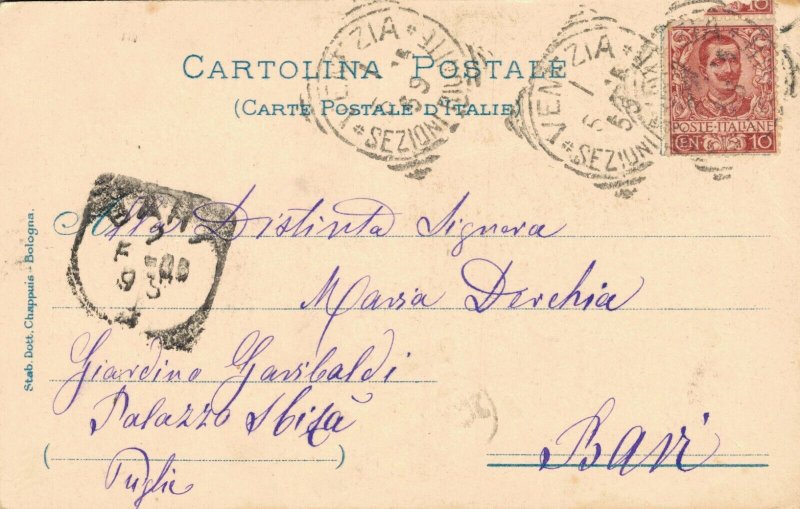 CARTOLINA POSTALE
(CARTE POSTALE D'ITALIE)
VENEZIA
SEZIONI RIUNITE
VENEZIA
SEZIONI RIUNITE
10
POSTE ITALIANE
CENT 10
BARI
Alla Distinta Signora
Maria Derchia
Giardino Garibaldi
Palazzo Sbisà
Bari
Puglie
Stab. Dott. Chappuis - Bologna.